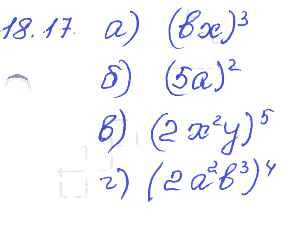 18.17. а) (bx)³
б) (5a)²
в) (2x²y)⁵
г) (2a²b³)⁴